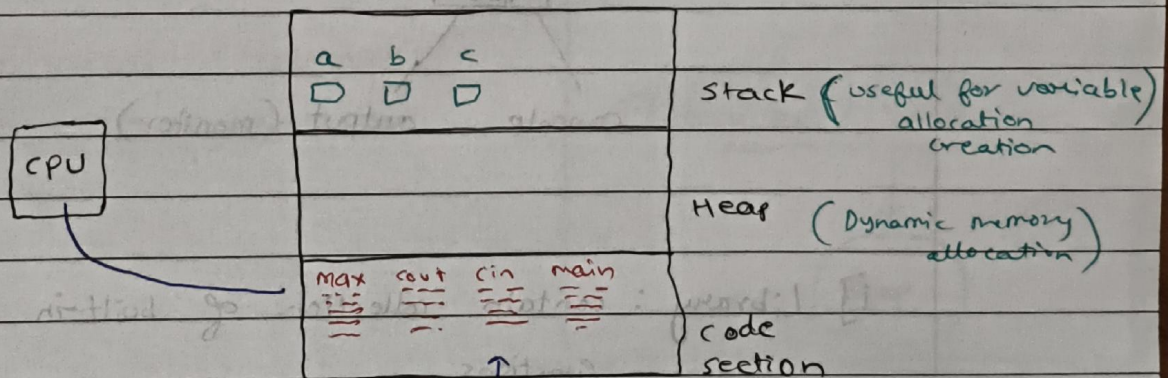 a b c
Stack (useful for variable)
allocation
creation
CPU
Heap (Dynamic memory)
allocation
max cout cin main
code
section